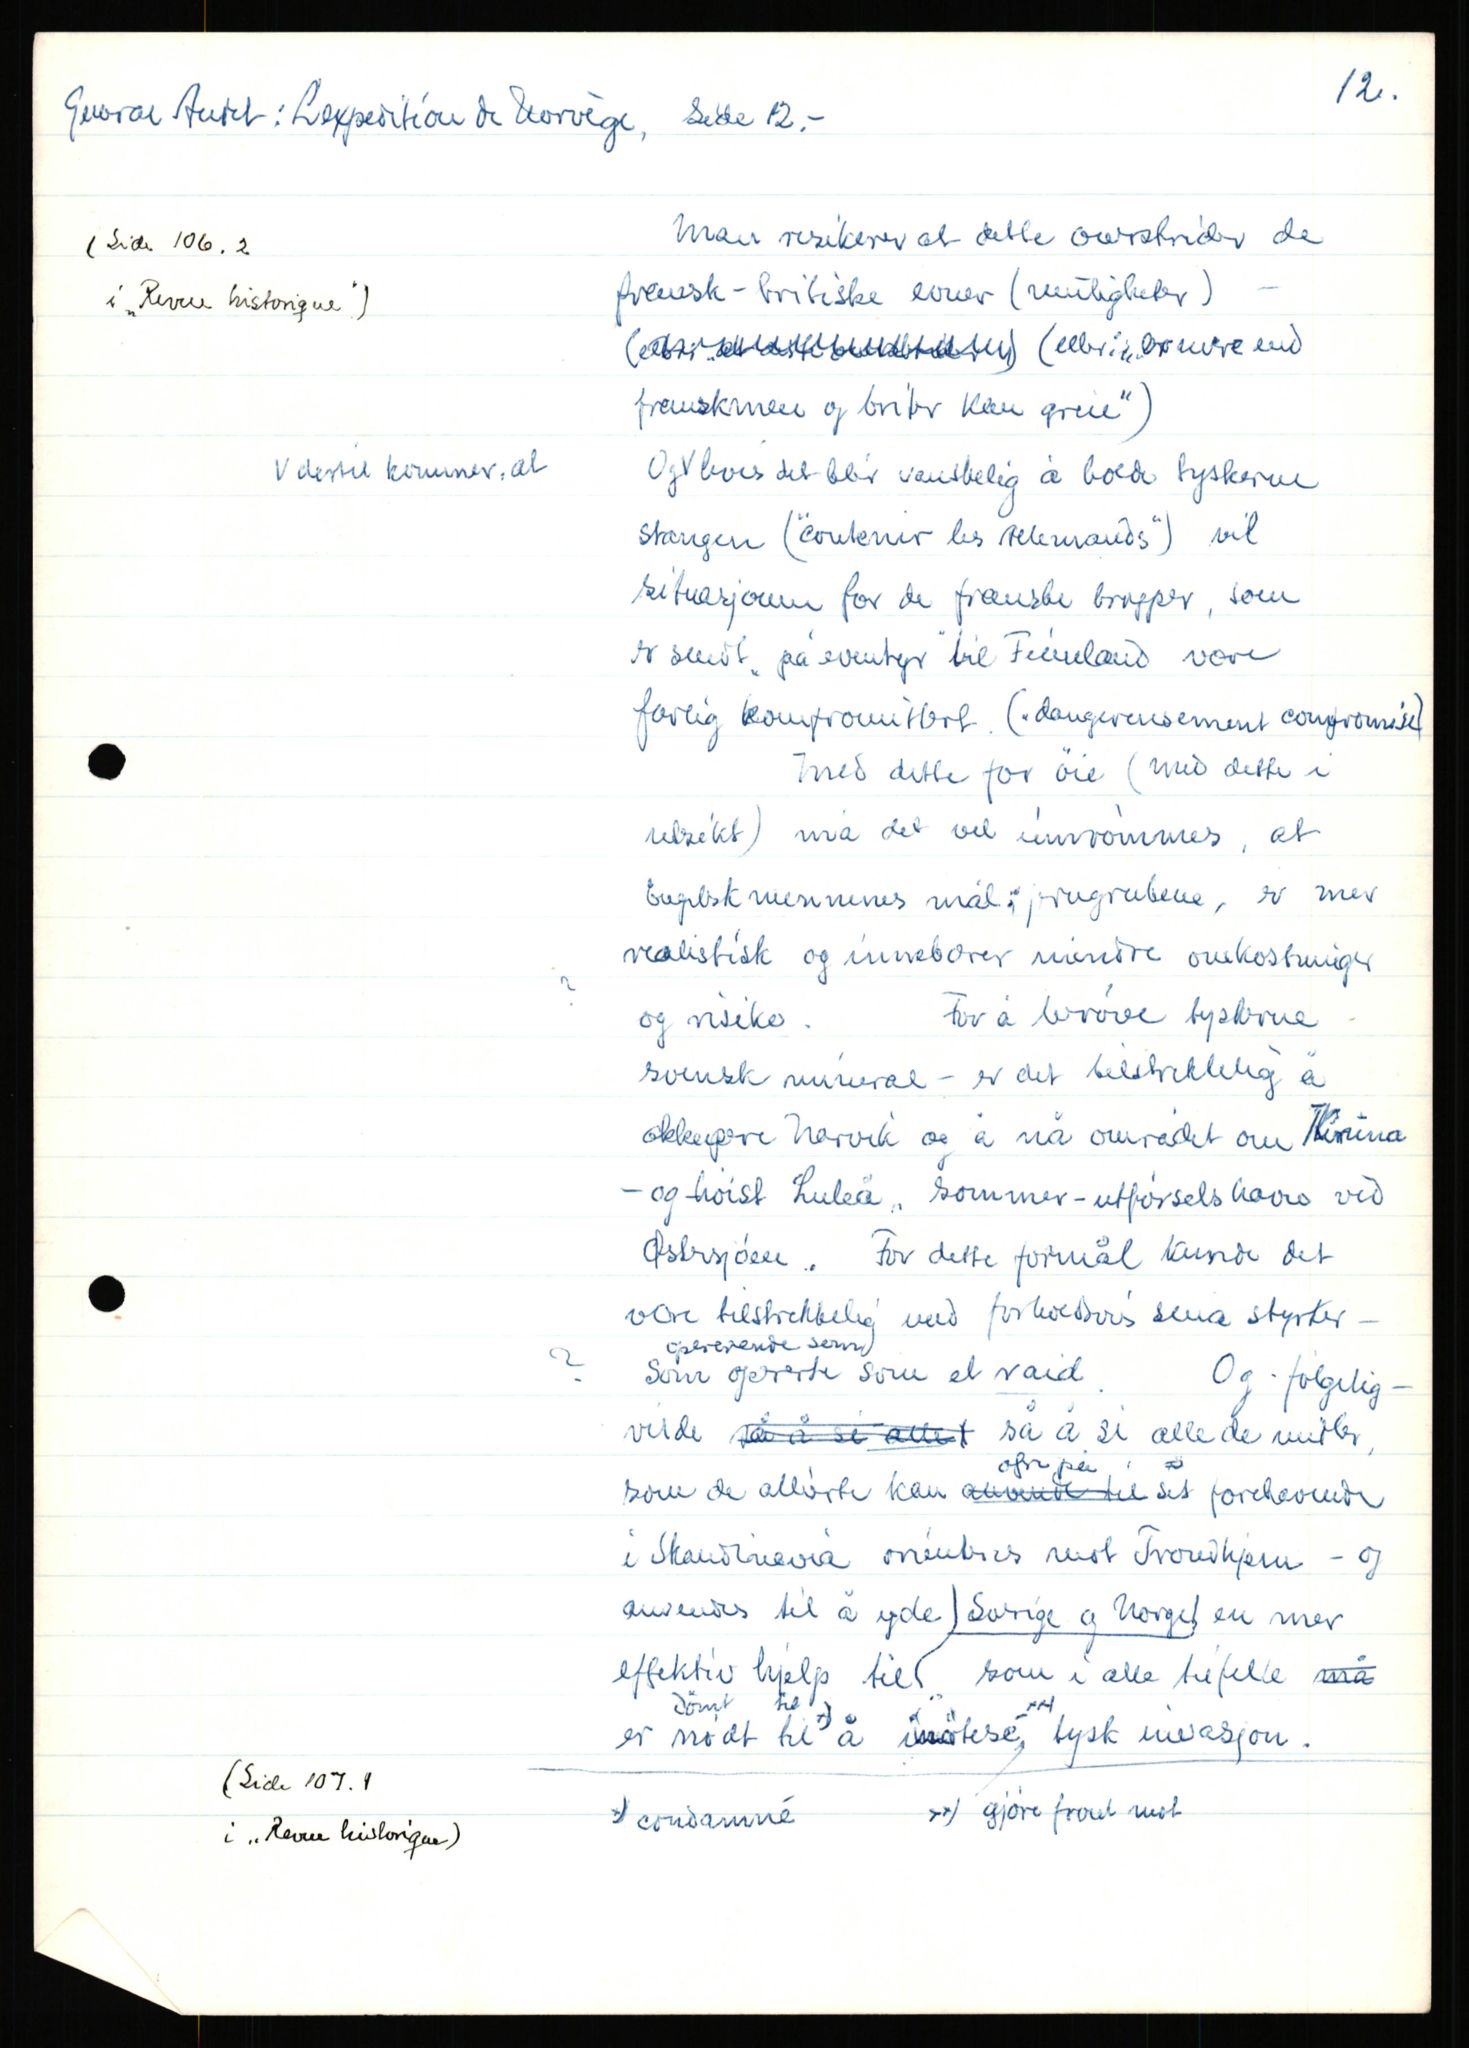 12.
General Audet: L'expedition de Norvège, Side 12.-
(Side 106.2
i „Revue historique")
Man risikerer at dette overstrider de
fransk-britiske evner (muligheter) -
(eller „er mere end
franskmen og briter kan greie")
V dertil kommer, at
Og V hvis det blir vanskelig å holde tyskerne
stangen ("contenir les Allemands") vil
situasjonen for de franske tropper, som
er sendt „på eventyr" til Finnland være
farlig kompromittert. („dangereusement compromise)
Med dette for öie (med dette i
utsikt) må det vel innrömmes, at
Engelskmennenes mål: jerngrubene, er mer
realistisk og innebærer mindre omkostninger
?
og risiko. For å beröve tyskerne
svensk mineral - er det tilstrekkelig å
okkupere Narvik og å nå området om Kiruna
- og höist Luleå „ sommer-utförselshavn ved
Østersjöen „. For dette formål kunde det
være tilstrekkelig med forholdsvis små styrker -
opererende som)
?
som opererte som et raid. Og - fölgelig -
vilde så å si allet så å si alle de midler,
ofre på
som de allierte kan anvende til sit forehavende
i Skandinavia orienteres mot Trondhjem - og
anvendes til å yde) Sverige og Norge, en mer
effektiv hjelp til som i alle tilfelle må
dömt til
er nödt til *) å imötese, **) tysk invasjon.
(Side 107.1
i „Revue historique)
*) condamné
**) gjöre front mot